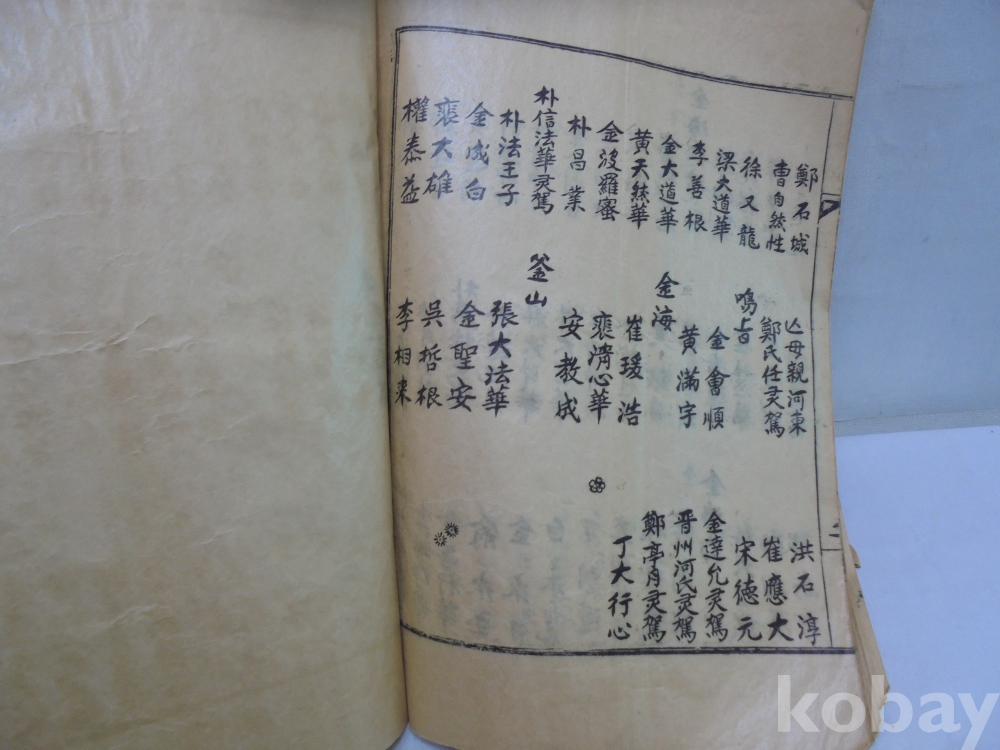 鄭石城
曹自然性
徐又龍
梁大道華
李善根
金大道華
黃天蓮華
金波羅蜜
朴昌業
朴信法華灵駕
朴法王子
金成白
裵大雄
權泰益
亡母親河東
鄭氏任灵駕
鳴旨
金會順
黃滿字
金海
崔瑗浩
裵淸心華
安教成
釜山
張大法華
金聖安
吳哲根
李相來
洪石淳
崔應大
宋德元
金達允灵駕
晋州河氏灵駕
鄭亭月灵駕
丁大行心
kobay